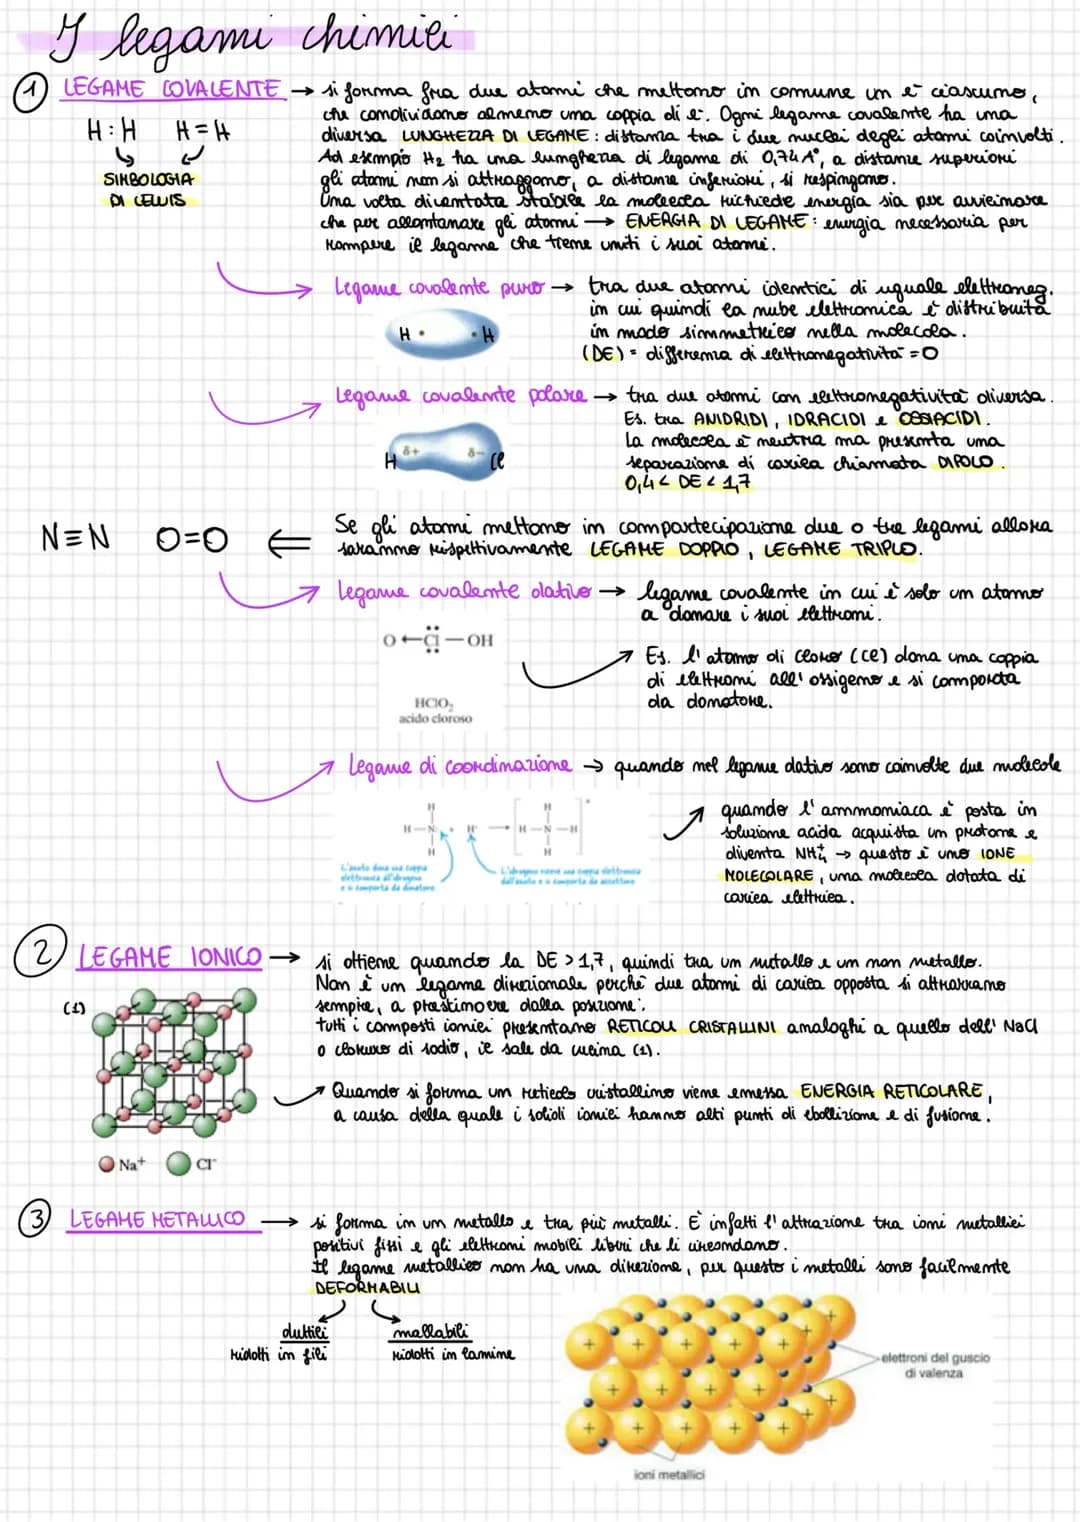 I legami chimici
1 LEGAME COVALENTE → si forma fra due atomi che mettono in comune un e⁻ ciascuno,
che condividono almeno una coppia di e⁻. Ogni legame covalente ha una
H:H H=H
diversa LUNGHEZZA DI LEGAME: distanza tra i due nuclei degli atomi coinvolti.
Ad esempio H₂ ha una lunghezza di legame di 0,74 A°, a distanze superiori
SIMBOLOGIA
DI LEWIS
gli atomi non si attraggono, a distanze inferiori, si respingono.
Una volta diventata stabile la molecola richiede energia sia per avvicinare
che per allontanare gli atomi → ENERGIA DI LEGAME: energia necessaria per
rompere il legame che tiene uniti i suoi atomi.
Legame covalente puro → tra due atomi identici di uguale elettroneg.
in cui quindi la nube elettronica è distribuita
H • • H
in modo simmetrico nella molecola.
(DE) = differenza di elettronegatività = 0
Legame covalente polare → tra due atomi con elettronegatività diversa.
Es. tra ANIDRIDI, IDRACIDI e OSSIACIDI.
La molecola è neutra ma presenta una
H δ+ δ- Cl
separazione di carica chiamata DIPOLO.
0,4 < DE < 1,7
N≡N O=O ⇐ Se gli atomi mettono in compartecipazione due o tre legami allora
saranno rispettivamente LEGAME DOPPIO, LEGAME TRIPLO.
Legame covalente dativo → legame covalente in cui è solo un atomo
a donare i suoi elettroni.
O←Cl—OH
HClO₂
acido cloroso
Es. l'atomo di cloro (Cl) dona una coppia
di elettroni all'ossigeno e si comporta
da donatore.
Legame di coordinazione → quando nel legame dativo sono coinvolte due molecole
H H
H—N: + H⁺ → [H—N—H]⁺
H H
L'azoto dona una coppia
elettronica all'idrogeno
e si comporta da donatore
L'idrogeno riceve una coppia elettronica
dall'azoto e si comporta da accettore
quando l'ammoniaca è posta in
soluzione acida acquista un protone e
diventa NH₄⁺ → questo è uno IONE
MOLECOLARE, una molecola dotata di
carica elettrica.
2 LEGAME IONICO → si ottiene quando la DE > 1,7, quindi tra un metallo e un non metallo.
Non è un legame direzionale perché due atomi di carica opposta si attrarranno
(1)
sempre, a prestimoere dalla posizione;
tutti i composti ionici presentano RETICOLI CRISTALLINI analoghi a quello dell' NaCl
o cloruro di sodio, il sale da cucina (1).
Quando si forma un reticolo cristallino viene emessa ENERGIA RETICOLARE,
a causa della quale i solidi ionici hanno alti punti di ebollizione e di fusione.
Na⁺ Cl⁻
3 LEGAME METALLICO → si forma in un metallo e tra più metalli. È infatti l'attrazione tra ioni metallici
positivi fissi e gli elettroni mobili liberi che li circondano.
Il legame metallico non ha una direzione, per questo i metalli sono facilmente
DEFORMABILI
duttili
ridotti in fili
mallabili
ridotti in lamine
elettroni del guscio
di valenza
ioni metallici